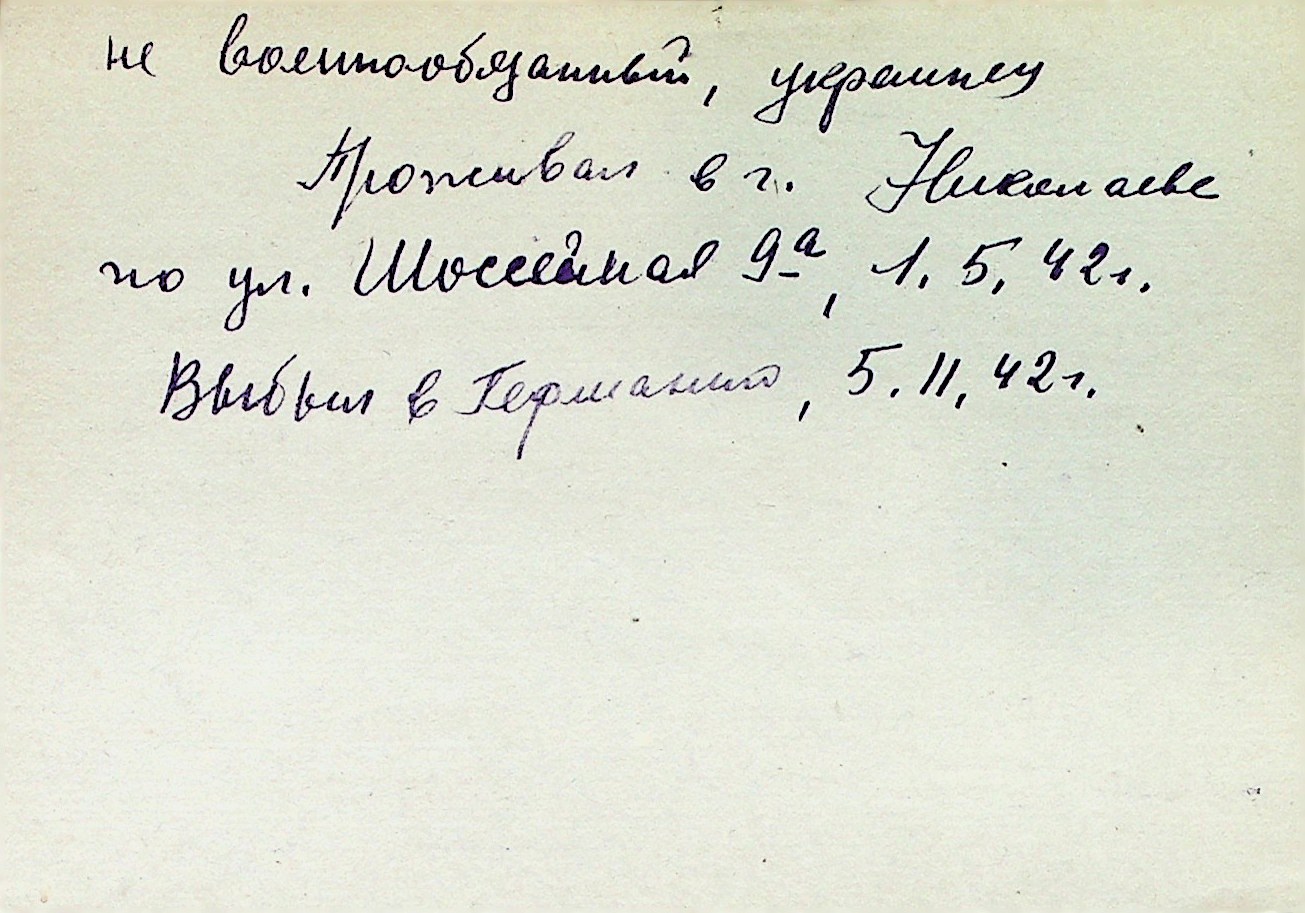 не военнообязанный, украинец
Проживал в г. Николаеве
по ул. Шоссейная 9а, 1.5.42г.
Выбыл в Германию, 5.11.42г.